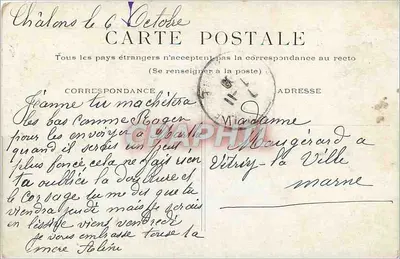 Châlons le 6 Octobre
CARTE POSTALE
Tous les pays étrangers n'acceptent pas la correspondance au recto
(Se renseigner à la poste)
CORRESPONDANCE
ADRESSE
Jeanne tu machètra
les bas comme Roger
pour les envoyer
quand il serais un peut
plus foncé cela ne fais rien
ta oublié la doublure et
le Corsage tu me dis que tu
viendra jeudi mais je serais
en lessive vient vendredi
je vous embrasse tous ta
mère
Madame
Maugérard à
Vitry-la Ville
marne